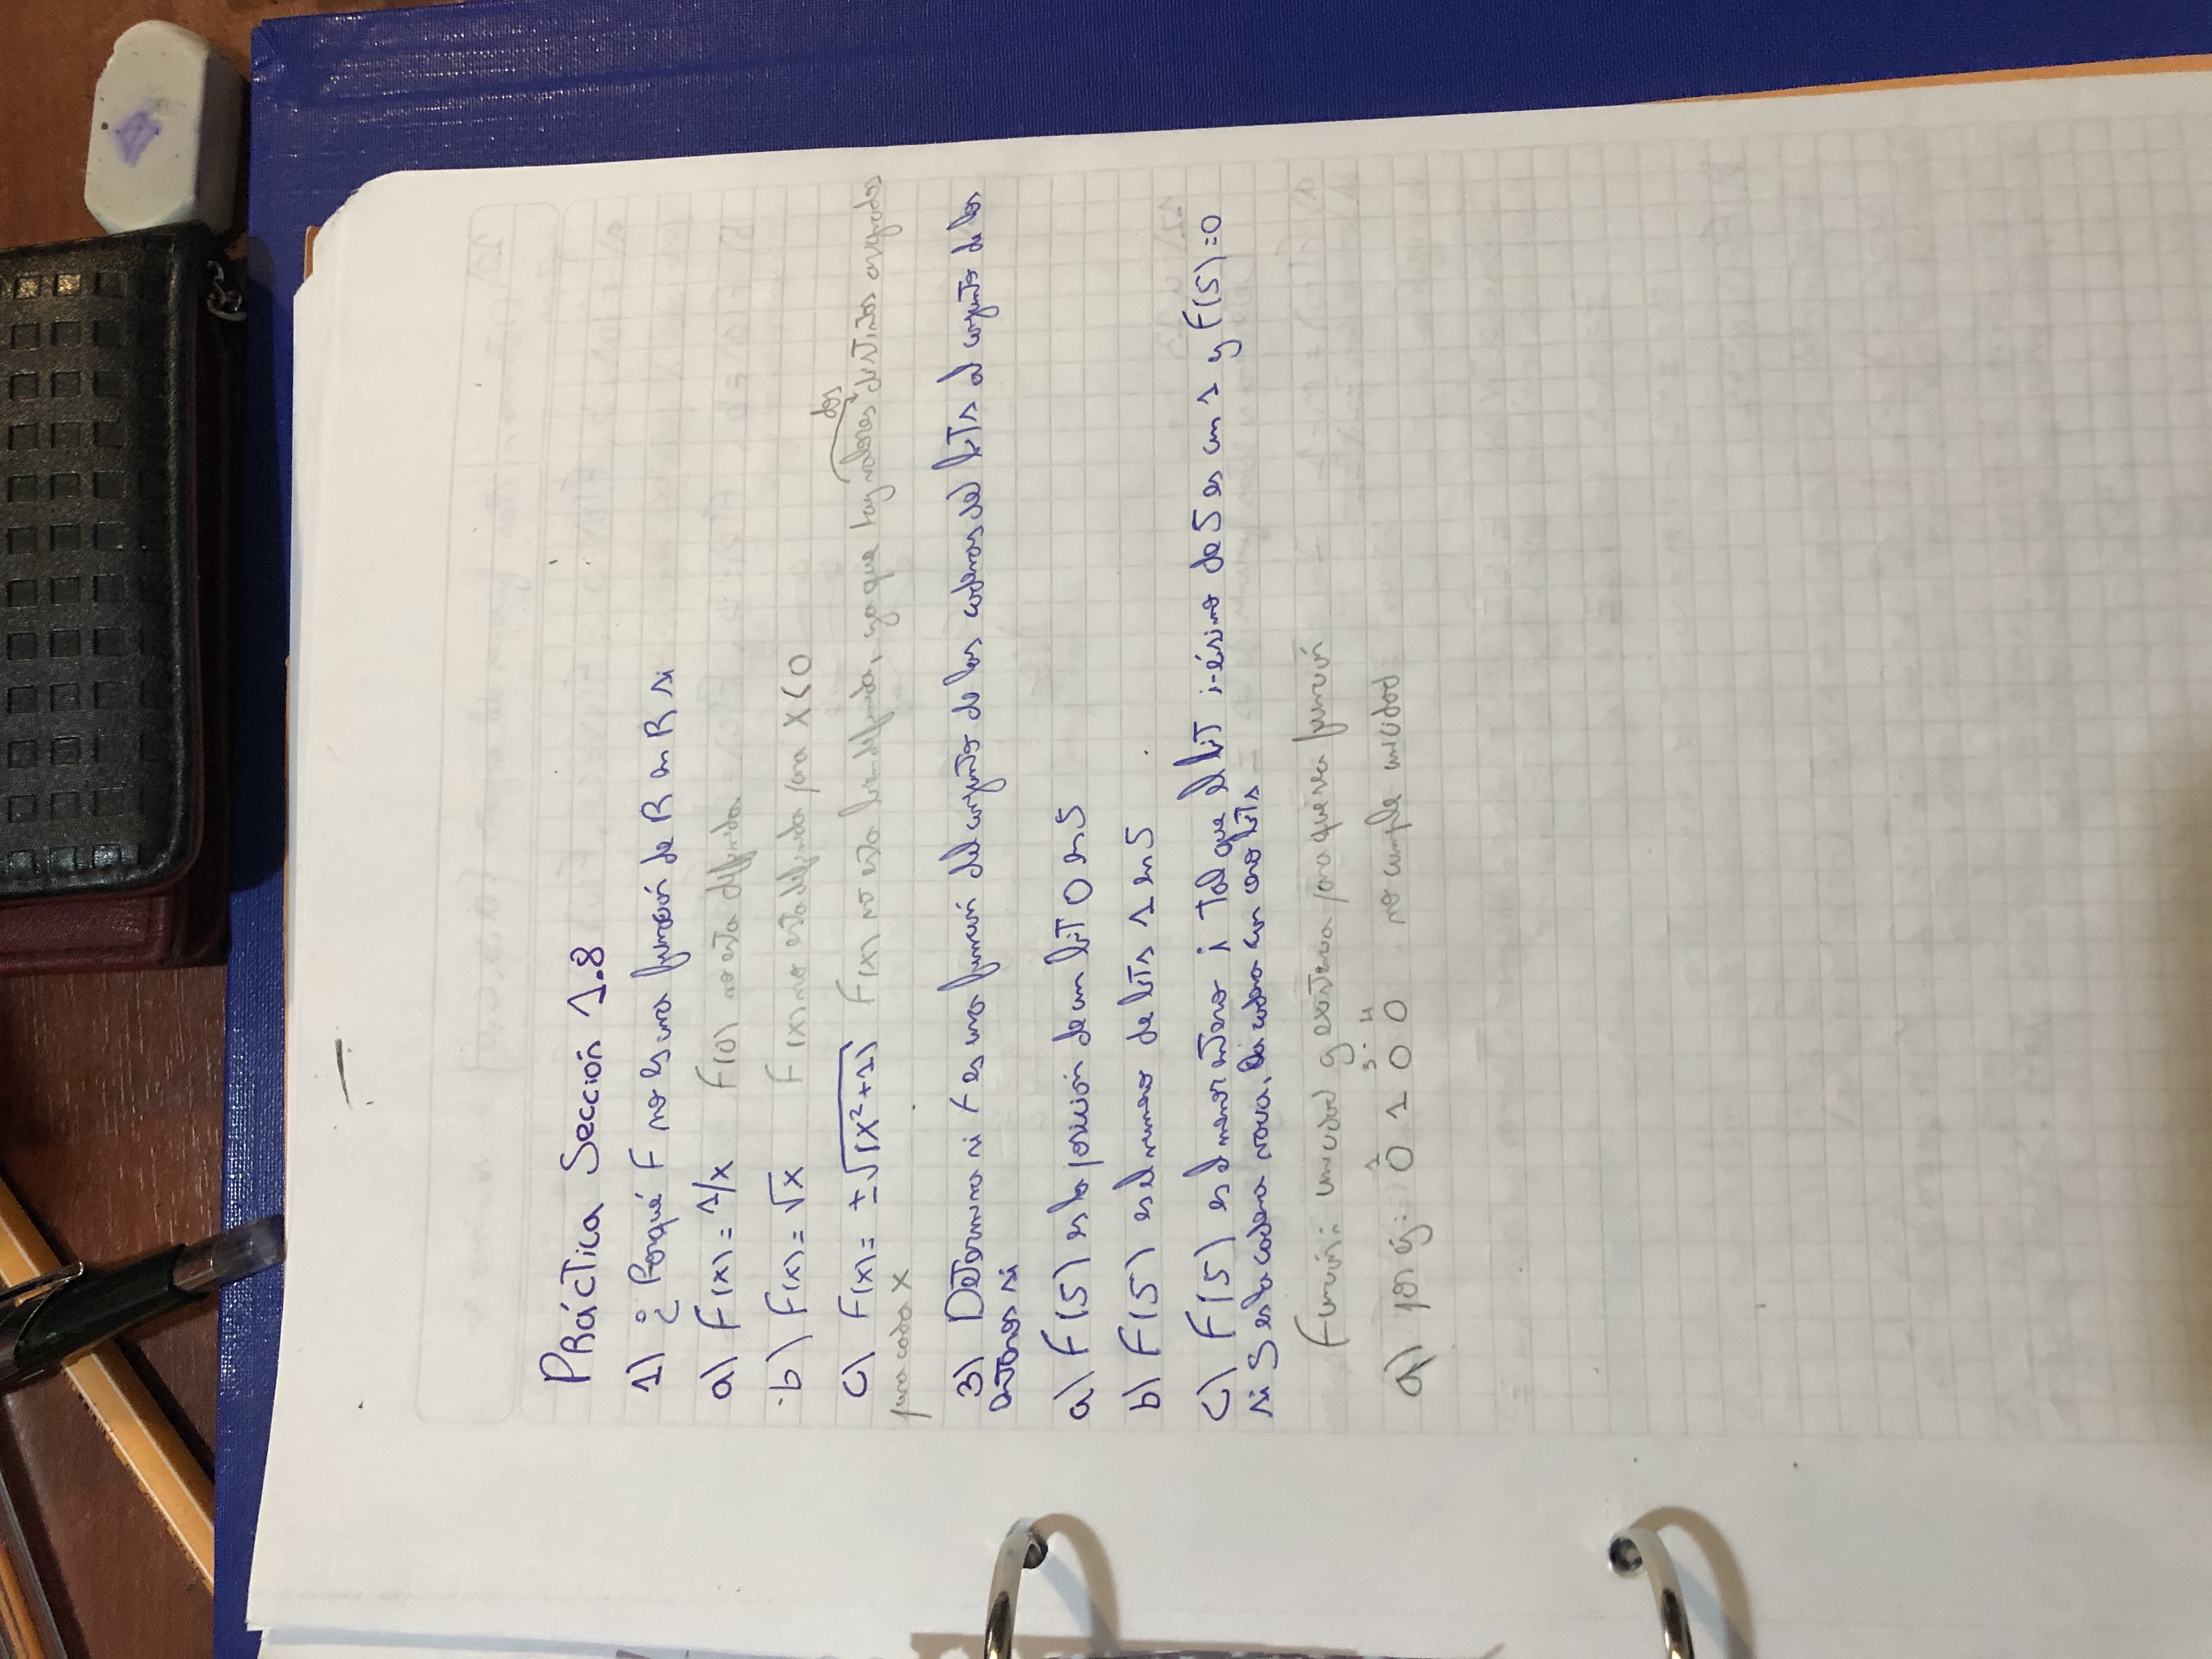 Práctica Sección 1.8
1) ¿Porqué F no es una función de R en R si
a) F(x) = 1/x F(0) no esta definida
b) F(x) = √x F(x) no esta definida para x<0
c) F(x) = ±√(x²+1) F(x) no esta bien definida, ya que hay dos valores distintos asignados
para cada x
3) Determina si F es una función del conjunto de las cadenas del bits al conjunto de los
enteros si
a) F(S) es la posición de un bit 0 en S
b) F(S) es el numero de bits 1 en S
c) F(S) es el menor entero i tal que el bit i-ésimo de S es un 1 y F(S)=0
si S es la cadena vacia, la cadena con cero bits
Función: unicidad y existencia para que sea función
1 3 4
a) por ej: 0 1 0 0 no cumple unicidad